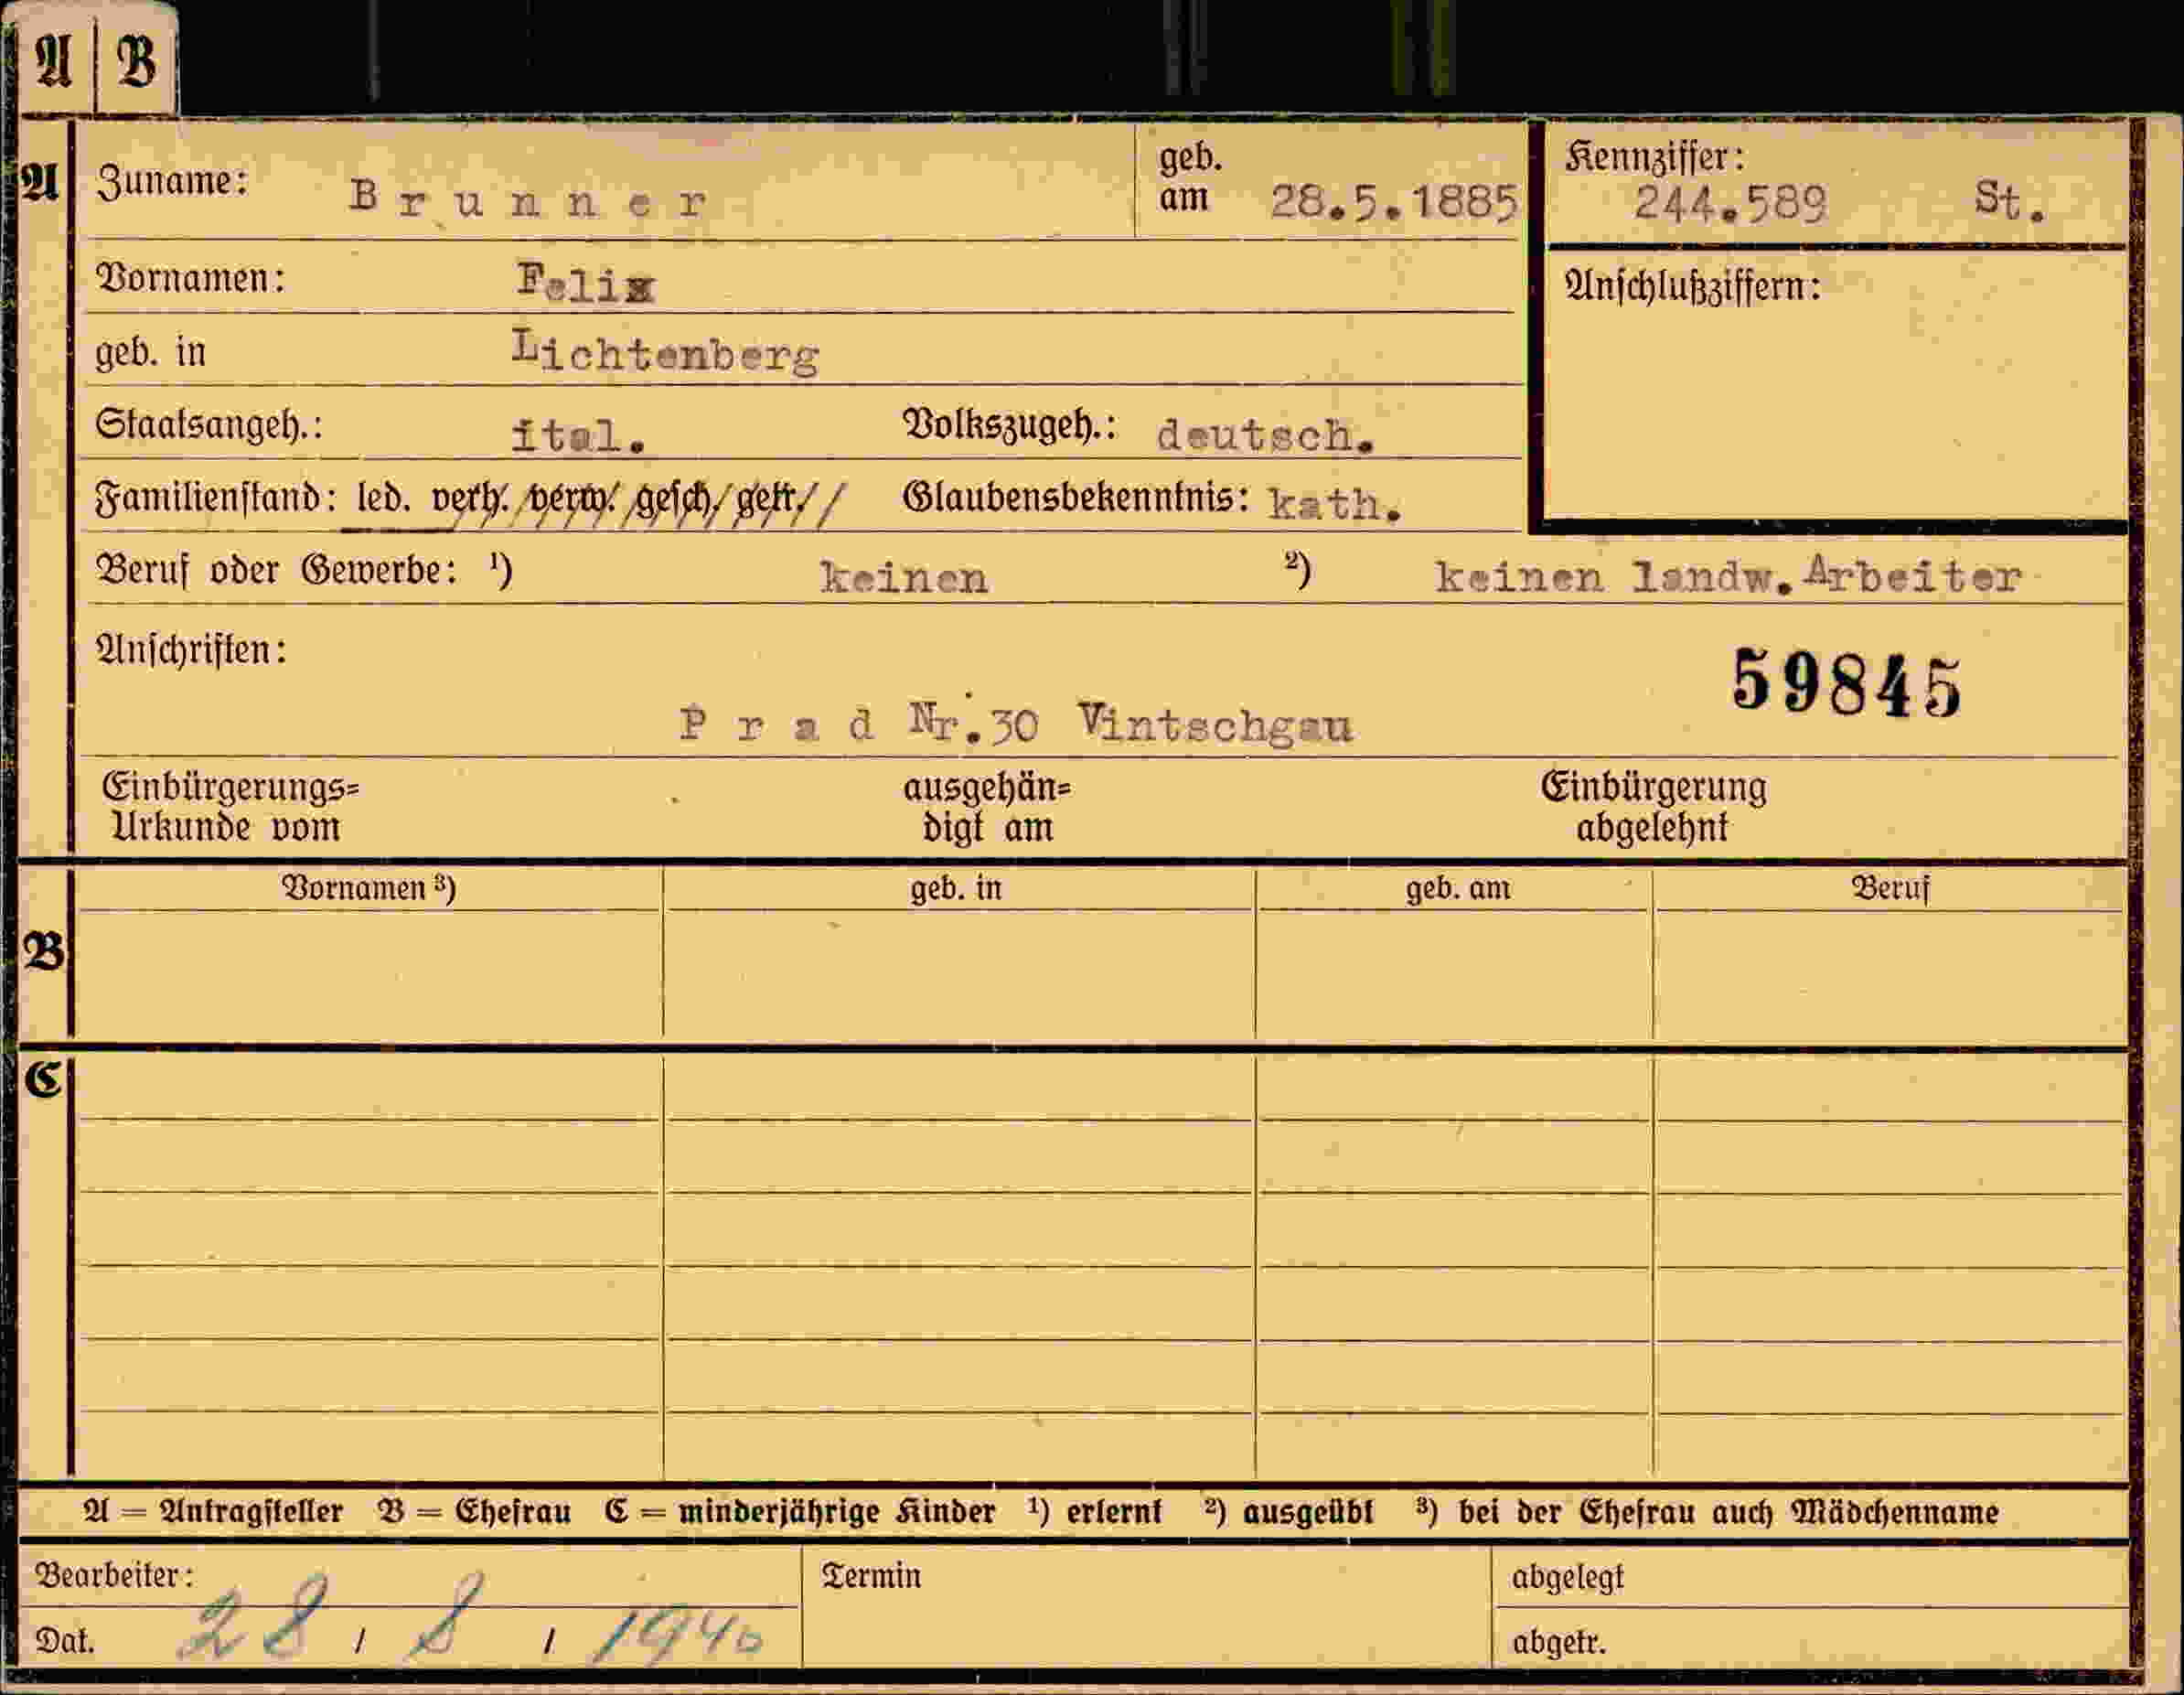 A B
A Zuname: Brunner geb. am 28.5.1885 Kennziffer: 244.589 St.
Vornamen: Felix Anschlußziffern:
geb. in Lichtenberg
Staatsangeh.: ital. Volkszugeh.: deutsch.
Familienstand: led. verh. verw. gesch. getr. Glaubensbekenntnis: kath.
Beruf oder Gewerbe: ¹) keinen ²) keinen landw. Arbeiter
Anschriften: 59845
Prad Nr. 30 Vintschgau
Einbürgerungs= ausgehän= Einbürgerung
Urkunde vom digt am abgelehnt
Vornamen ³) geb. in geb. am Beruf
B
C
A = Antragsteller B = Ehefrau C = minderjährige Kinder ¹) erlernt ²) ausgeübt ³) bei der Ehefrau auch Mädchenname
Bearbeiter: Termin abgelegt
Dat. 28 / 8 / 1940 abgetr.